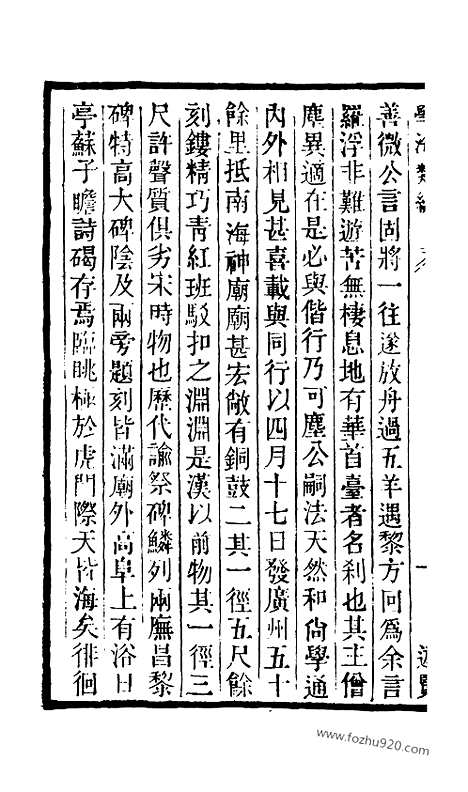 學海類編
善微公言固將一往遂放舟過五羊遇黎方回爲余言
羅浮非難遊苦無棲息地有華首臺者名刹也其主僧
塵異適在是必與偕行乃可塵公嗣法天然和尙學通
內外相見甚喜載與同行以四月十七日發廣州五十
餘里抵南海神廟廟甚宏敞有銅鼓二其一徑五尺餘
刻鏤精巧靑紅班駁扣之淵淵是漢以前物其一徑三
尺許聲質俱劣宋時物也歷代諭祭碑鱗列兩廡昌黎
碑特高大碑陰及兩旁題刻皆滿廟外高阜上有浴日
亭蘇子瞻詩碣存焉臨眺極於虎門際天皆海矣徘徊
www.fozhu920.com